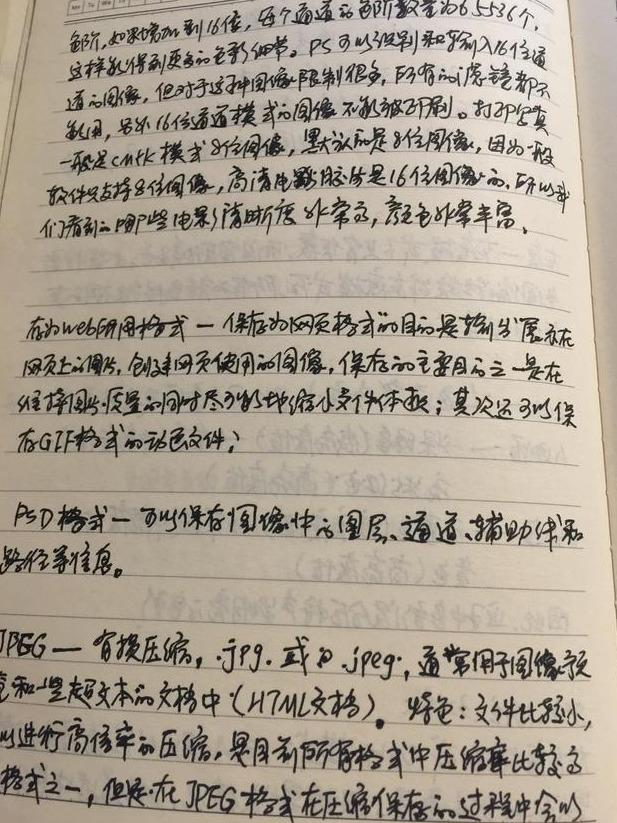 色阶,如果增加到16位,每个通道的色阶数量为65536个,
这样能得到更多的色彩细节。PS可以识别和输入16位通
道的图像,但对于这种图像限制很多,所有的滤镜都不
能用,另外16位通道模式的图像不能被印刷。打印写真
一般是CMYK模式8位图像,默认的是8位图像,因为一般
软件只支持8位图像,高清电影胶片是16位图像的,所以我
们看到的那些电影清晰度非常高,颜色非常丰富。
存为web所用格式—保存为网页格式的目的是输出展示在
网页上的图片,创建网页使用的图像,保存的主要目的之一是在
维持图片质量的同时尽可能地缩小文件体积;其次还可以保
存GIF格式的动态文件;
PSD格式—可以保存图像中的图层、通道、辅助线和
路径等信息。
JPEG—有损压缩,.jpg.或为.jpeg.,通常用于图像预
览和一些超文本的文档中(HTML文档)。特色:文件比较小,
以进行高倍率的压缩,是目前所有格式中压缩率比较高
格式之一,但是在JPEG格式在压缩保存的过程中会以